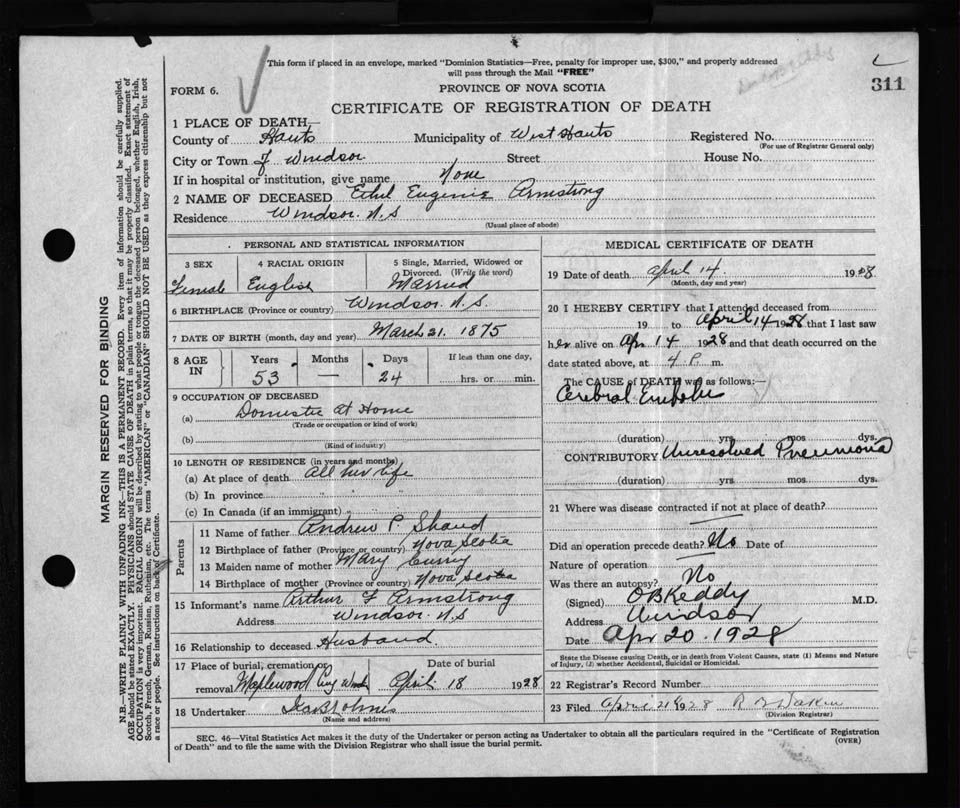 This form if placed in an envelope, marked "Dominion Statistics—Free, penalty for improper use, $300," and properly addressed
will pass through the Mail "FREE"
311
FORM 6.
PROVINCE OF NOVA SCOTIA
CERTIFICATE OF REGISTRATION OF DEATH
1 PLACE OF DEATH—
County of Hants Municipality of West Hants Registered No.
(For use of Registrar General only)
City or Town of Windsor Street House No.
If in hospital or institution, give name None
2 NAME OF DECEASED Ethel Eugenie Armstrong
Residence Windsor. N.S
(Usual place of abode)
PERSONAL AND STATISTICAL INFORMATION
3 SEX 4 RACIAL ORIGIN 5 Single, Married, Widowed or
Divorced. (Write the word)
Female English Married
6 BIRTHPLACE (Province or country) Windsor. N.S.
7 DATE OF BIRTH (month, day and year) March 21. 1875
8 AGE IN Years Months Days If less than one day,
53 — 24 hrs. or min.
9 OCCUPATION OF DECEASED
(a) Domestic at Home
(Trade or occupation or kind of work)
(b)
(Kind of industry)
10 LENGTH OF RESIDENCE (in years and months)
(a) At place of death All her life
(b) In province
(c) In Canada (if an immigrant)
Parents
11 Name of father Andrew P. Shand
12 Birthplace of father (Province or country) Nova Scotia
13 Maiden name of mother Mary Curry
14 Birthplace of mother (Province or country) Nova Scotia
15 Informant's name Arthur F Armstrong
Address Windsor N.S
16 Relationship to deceased Husband.
17 Place of burial, cremation or Date of burial
removal Maplewood April 18 1928
18 Undertaker
(Name and address)
MEDICAL CERTIFICATE OF DEATH
19 Date of death April 14. 1928
(Month, day and year)
20 I HEREBY CERTIFY that I attended deceased from
19 to April 14 1928 that I last saw
her alive on Apr 14 1928 and that death occurred on the
date stated above, at 4 P. m.
The CAUSE of DEATH was as follows:—
Cerebral
(duration) yrs. mos. dys.
CONTRIBUTORY Unresolved Pneumonia
(duration) yrs. mos. dys.
21 Where was disease contracted if not at place of death?
Did an operation precede death? No Date of
Nature of operation
Was there an autopsy? No
(Signed) O B Keddy M.D.
Address Windsor
Date Apr 20. 1928
State the Disease causing Death, or in death from Violent Causes, state (1) Means and Nature
of Injury, (2) whether Accidental, Suicidal or Homicidal.
22 Registrar's Record Number
23 Filed April 21 1928
(Division Registrar)
SEC. 46—Vital Statistics Act makes it the duty of the Undertaker or person acting as Undertaker to obtain all the particulars required in the "Certificate of Registration
of Death" and to file the same with the Division Registrar who shall issue the burial permit.
(OVER)
MARGIN RESERVED FOR BINDING
N.B.—WRITE PLAINLY WITH UNFADING INK—THIS IS A PERMANENT RECORD. Every item of information should be carefully supplied.
AGE should be stated EXACTLY. PHYSICIANS should STATE CAUSE OF DEATH in plain terms, so that it may be properly classified. Exact statement of
OCCUPATION is very important. RACIAL ORIGIN will be described by stating to what people or tongue the deceased person belonged, whether English, Irish,
Scotch, French, German, Russian, Ruthenian, etc. The terms "AMERICAN" or "CANADIAN" SHOULD NOT BE USED as they express citizenship but not
a race or people. See instructions on back of Certificate.